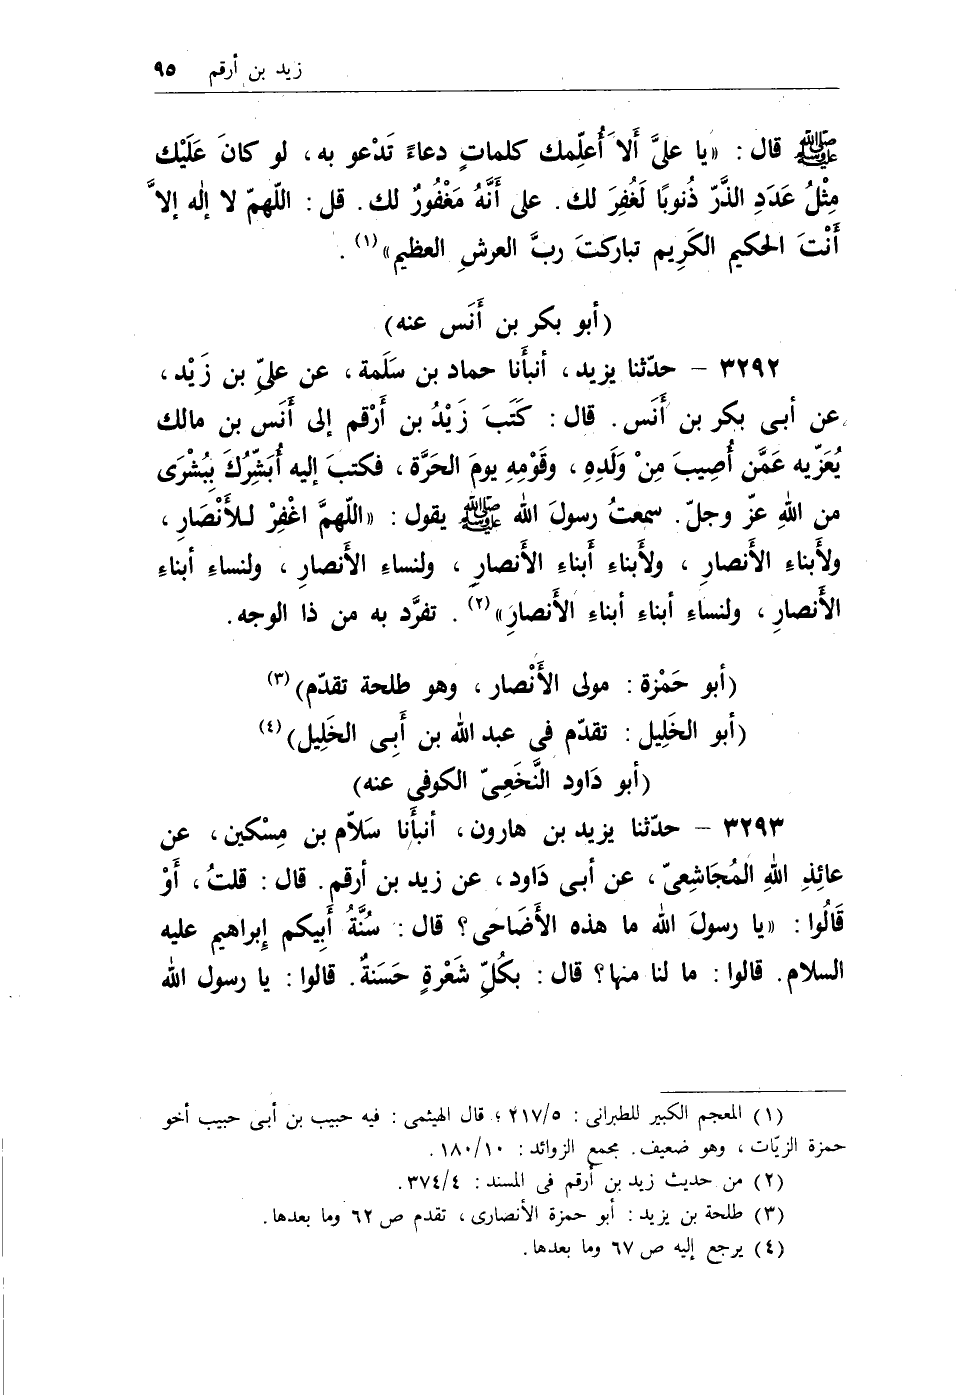 زيد بن أرقم ٩٥
ﷺ قال : «يا علىَّ أَلاَ أُعلِّمك كلماتٍ دعاءً تَدْعو به ، لو كانَ عَلَيْك
مِثْلُ عَدَدِ الذَّرّ ذُنوبًا لَغُفِرَ لك . على أَنَّهُ مَغْفُورٌ لك . قل : اللّهمّ لا إله إلاَّ
أَنْتَ الحكيم الكَرِيم تباركتَ ربَّ العرشِ العظيم»(١) .
(أبو بكر بن أَنَس عنه)
٣٢٩٢ – حدّثنا يزيد ، أنبأَنا حماد بن سَلَمة ، عن علىِّ بن زَيْد ،
عن أبى بكر بن أَنَس . قال : كَتَبَ زَيْدُ بن أَرْقم إلى أَنَس بن مالك
يُعَزّيه عَمَّن أُصِيبَ مِنْ وَلَدِهِ ، وقَوْمِهِ يومَ الحَرَّة ، فكتبَ إليه أُبَشِّرُكَ بِبُشْرَى
من اللهِ عزّ وجلّ . سمعتُ رسولَ الله ﷺ يقول : «اللّهمَّ اغْفِرْ للأَنْصَارِ ،
ولأَبناءِ الأَنصارِ ، ولأَبناءِ أَبناءِ الأَنصارِ ، ولنساءِ الأَنصارِ ، ولنساءِ أبناءِ
الأَنصارِ ، ولنساءِ أبناءِ أبناءِ الأَنصارِ»(٢) . تفرَّد به من ذا الوجه .
(أبو حَمْزة : مولى الأَنْصار ، وهو طلحة تقدّم)(٣)
(أبو الخَلِيل : تقدّم فى عبد الله بن أَبِى الخَلِيل)(٤)
(أبو دَاود النَّخَعِىّ الكوفى عنه)
٣٢٩٣ – حدّثنا يزيد بن هارون ، أنبأَنا سَلاّم بن مِسْكين ، عن
عائِذِ اللهِ المُجَاشعِىّ ، عن أبى دَاود ، عن زيد بن أرقم . قال : قلتُ ، أَوْ
قَالُوا : «يا رسولَ الله ما هذه الأَضَاحى؟ قال : سُنَّةُ أَبِيكم إبراهيم عليه
السلام . قالوا : ما لنا منها؟ قال : بكُلِّ شَعْرةٍ حَسَنةٌ . قالوا : يا رسول الله
(١) المعجم الكبير للطبرانى : ٢١٧/٥ ؛ قال الهيثمى : فيه حبيب بن أبى حبيب أخو
حمزة الزيّات ، وهو ضعيف . مجمع الزوائد : ١٨٠/١٠ .
(٢) من حديث زيد بن أرقم فى المسند : ٣٧٤/٤ .
(٣) طلحة بن يزيد : أبو حمزة الأنصارى ، تقدم ص ٦٢ وما بعدها .
(٤) يرجع إليه ص ٦٧ وما بعدها .